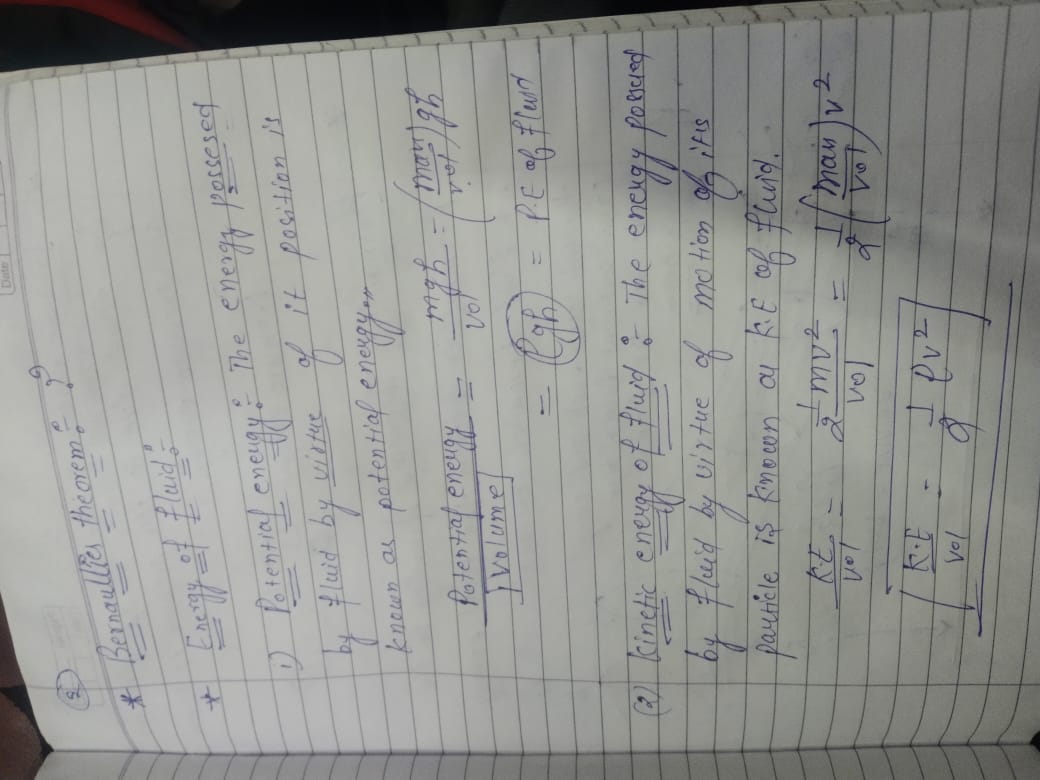 Date
2
* Bernaullies theorem :- ?
* Energy of fluid :-
1) Potential energy :- The energy possesed
by fluid by virtue of it position is
known as potential energy...
Potential energy / Volume = mgh / vol = (mass / vol) gh
= ρgh = P.E of fluid
(2) Kinetic energy of fluid :- The energy possesed
by fluid by virtue of motion of its
particle is known as K.E of fluid.
K.E / vol = 1/2 mv² / vol = 1/2 (mass / vol) v²
K.E / vol = 1/2 ρv²